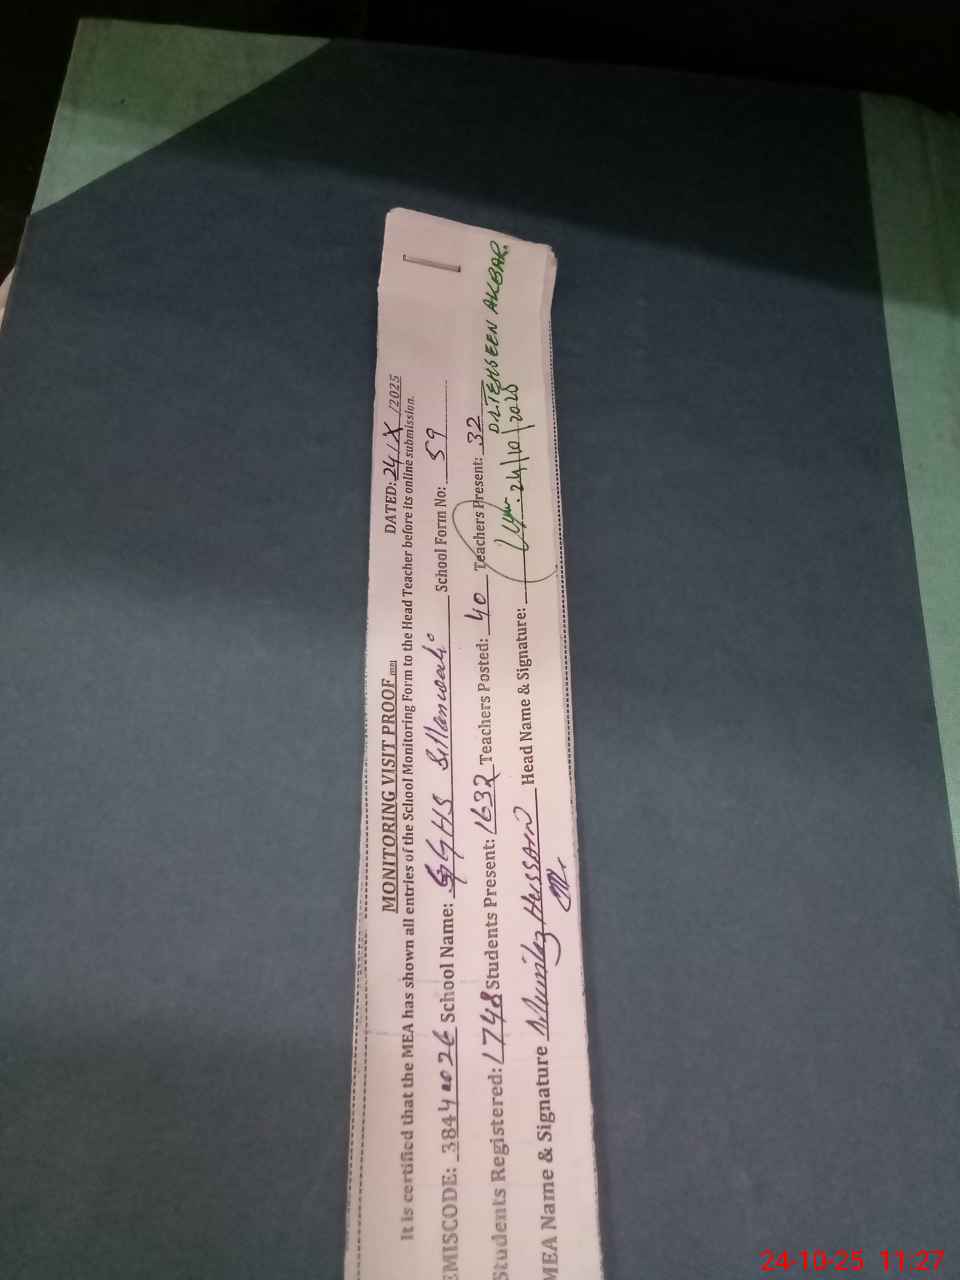 MONITORING VISIT PROOF DATED: 24/X/2025
It is certified that the MEA has shown all entries of the School Monitoring Form to the Head Teacher before its online submission.
EMISCODE: School Name: GGHS Sillanwali School Form No: 59
Students Registered: 1748 Students Present: 1632 Teachers Posted: 40 Teachers Present: 32
MEA Name & Signature Mumtaz Hussain Head Name & Signature: 24/10/2025
DR.TEHSEEN AKBAR
24-10-25 11:27